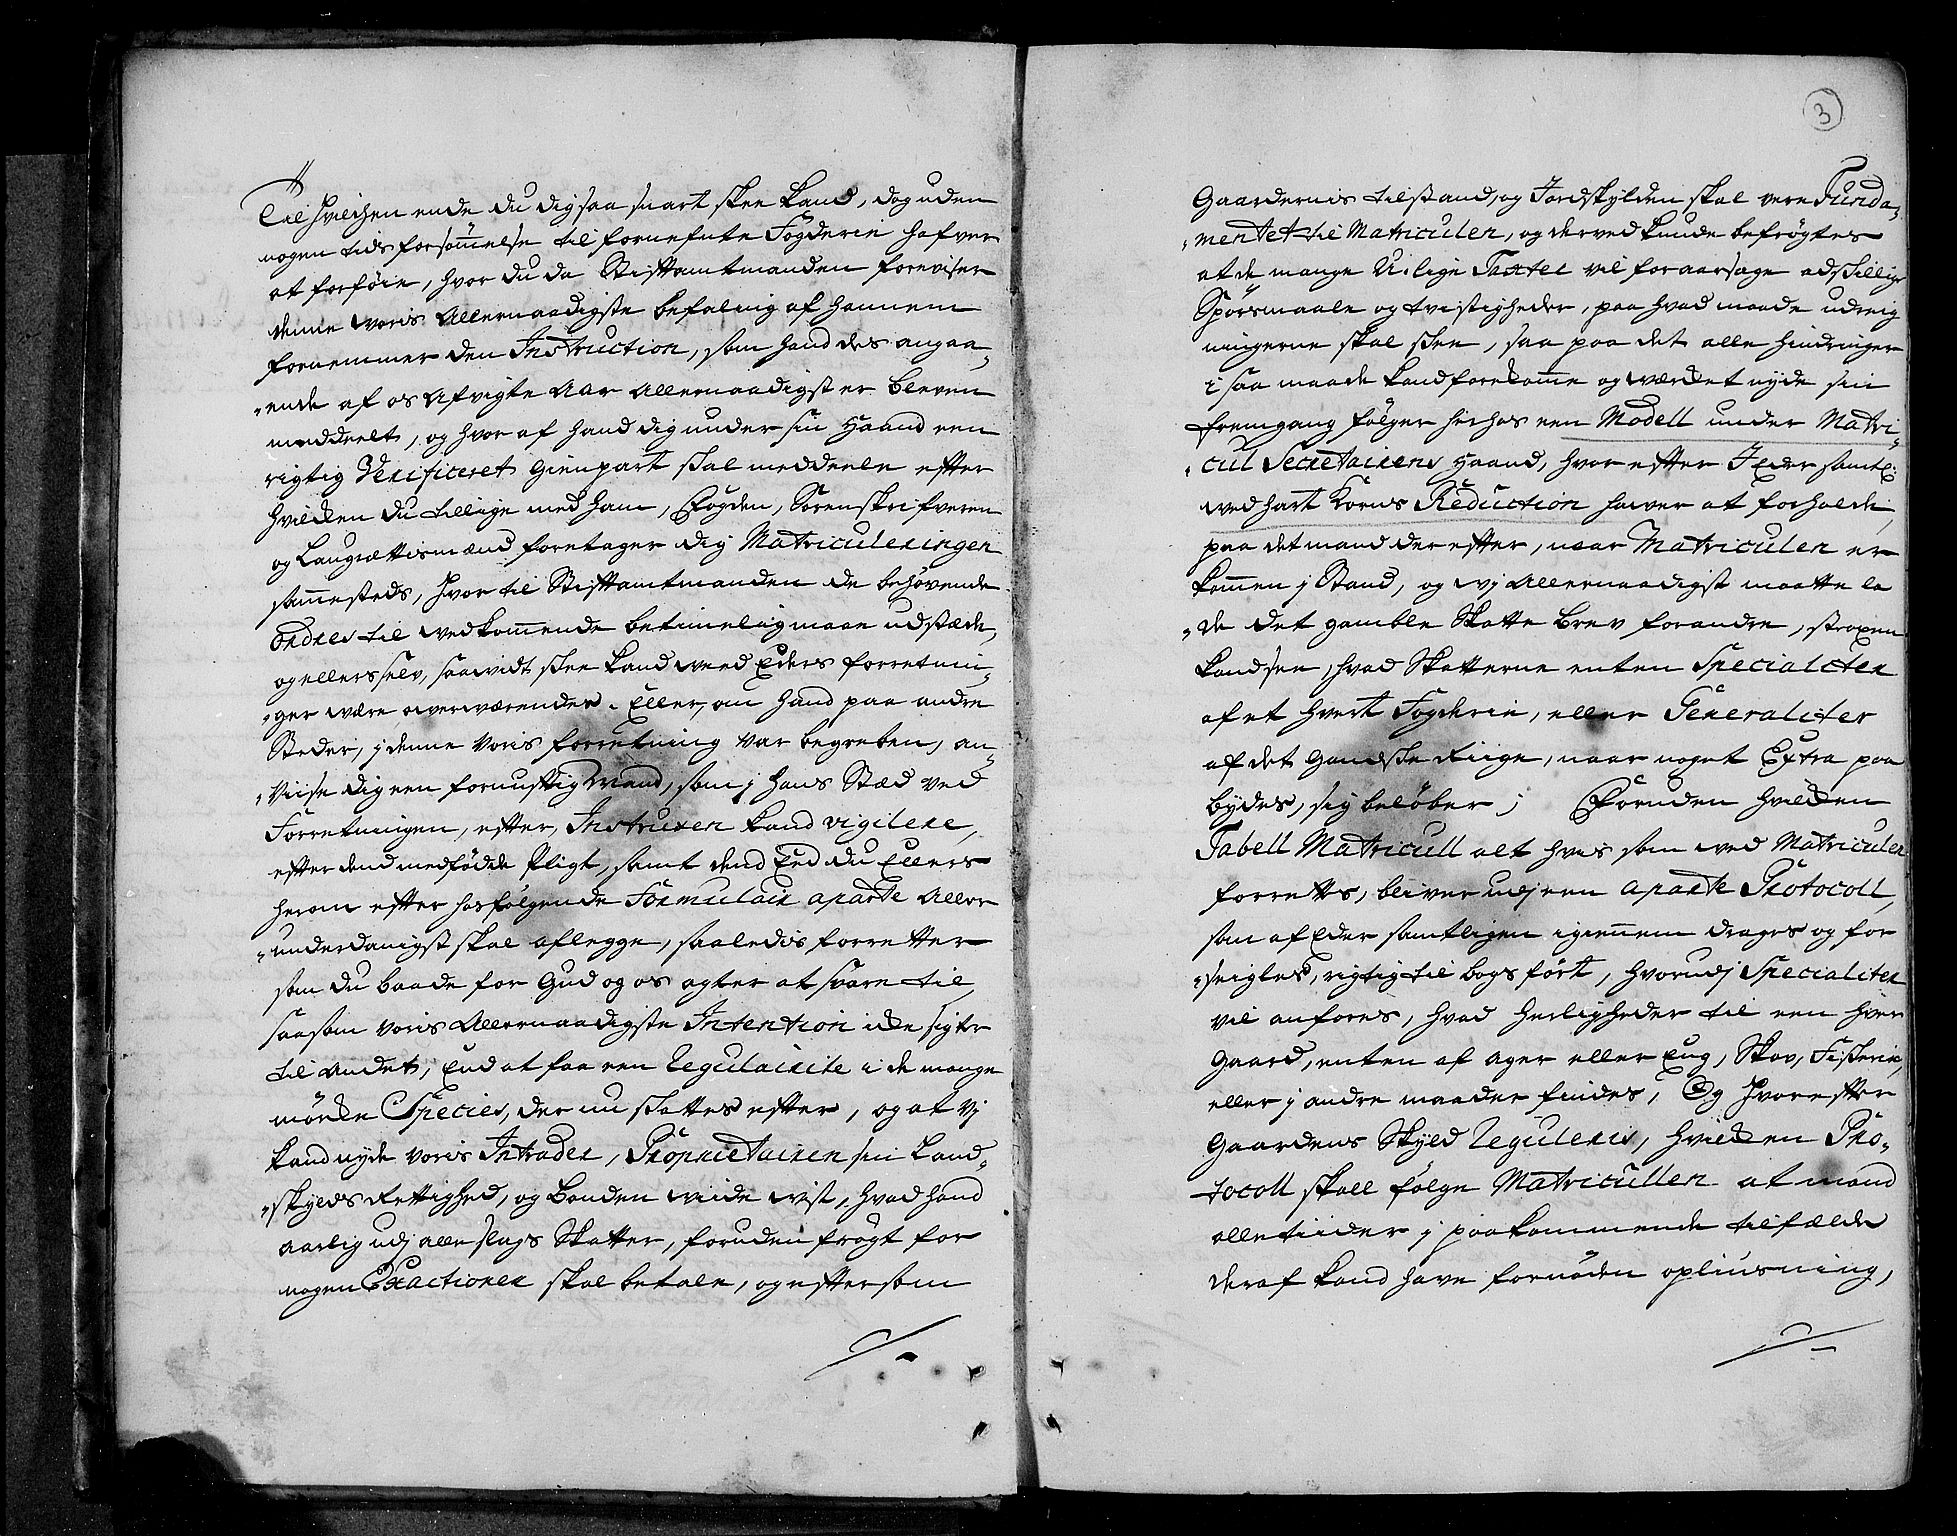 Til hvilchen ende du dig saa snart skee kand, dog uden
nogen tids forsømmelse til fornefnte Fogderie hafver
at forføie, hvor du da Stiftamtmanden foreviser
denne woris Allernaadigste befaling af hannem
fornemmer den Instruction, som hand des angaa-
ende af os Afvigte Aar Allernaadigst er bleven
meddeelt, og hvor af hand dig under sin Haand een
rigtig Verificeret gienpart skal meddeele efter
hvilcken du tillige med ham, Fogden, Sorenskrifveren
og Laugrettismænd foretager dig Matriculeringen
sammesteds, hvor til Stiftamtmanden de behøvende
Ordres til wedkommende betimelig maae udstæde,
og ellers selv, saa widt skee kand weed Eders forretnin-
ger være overværendes. Eller, om hand paa andre
Steder, j denne Voris forretning var begreben, an-
Viise dig een fornuftig Mand, som j hans Stæd ved
Forretningen, efter Instruxen kand vigilere,
efter dend medfødde Pligt, samt dend Eed du Ellers
herom efter hosfølgende Formulair aparte Aller
underdanigst skal aflegge, saaledis forretter
som du baade for Gud og os agter at svare til,
saasom voris Allernaadigste Intention icke sigter
til andet, End at faa een Regulairite i de mange
mørcke Species, der nu skattes efter, og at vj
kand nyde voris Intrader, Proprietairen sin Land-
skylds Rettighed, og Bonden wiide wist, hvad hand
aarlig udj alle slags Skatter, foruden frygt for
nogen Exactioner skal betale, og eftersom
3
Gaardernis tilstand, og Jordskylden skal vere Funda-
mentet til Matriculen, og derved kunde befrøgtes
at de mange Ulige Taxter vil foraarsage adskillige
Spørsmaale og tvistigheder, paa hvad maade udreig
ningerne skal skee, saa paa det alle hindringer
i saa maade kand forekomme og wærcket nyde sin
fremgang følger herhos een Modell under Matri-
cul Secretairens Haand, hvor efter I Eder samtl:
wed hart Korns Reduction haver at forholde,
paa det mand der efter, naar Matriculen er
kommen j Stand, og wj Allernaadigst maatte la-
de det gamble Skatte Brev forandre, straxen
kand see, hvad Skatterne enten Specialiter
af et hvert Fogderie, eller Generaliter
af det gandske Riige, naar noget Extra paa
bydes, sig beløber; Foruden hvilcken
Tabell Matricull alt hvis som ved Matriculen
forrettes, bliver udj een aparte Protocoll,
som af Eder samtligen igiennem drages og for
seigles, rigtig til bogs ført, hvorudj Specialiter
vil anføres, hvad herligheder til een hver
Gaard, enten af ager eller Eng, Skov, Fiskerie,
eller j andre maader findes, Og hvorefter
Gaardens Skyld Reguleris, hvilcken Pro-
tocoll skall følge Matricullen at mand
alletiider j paakommende tilfælde
deraf kand have fornøden opliusning,